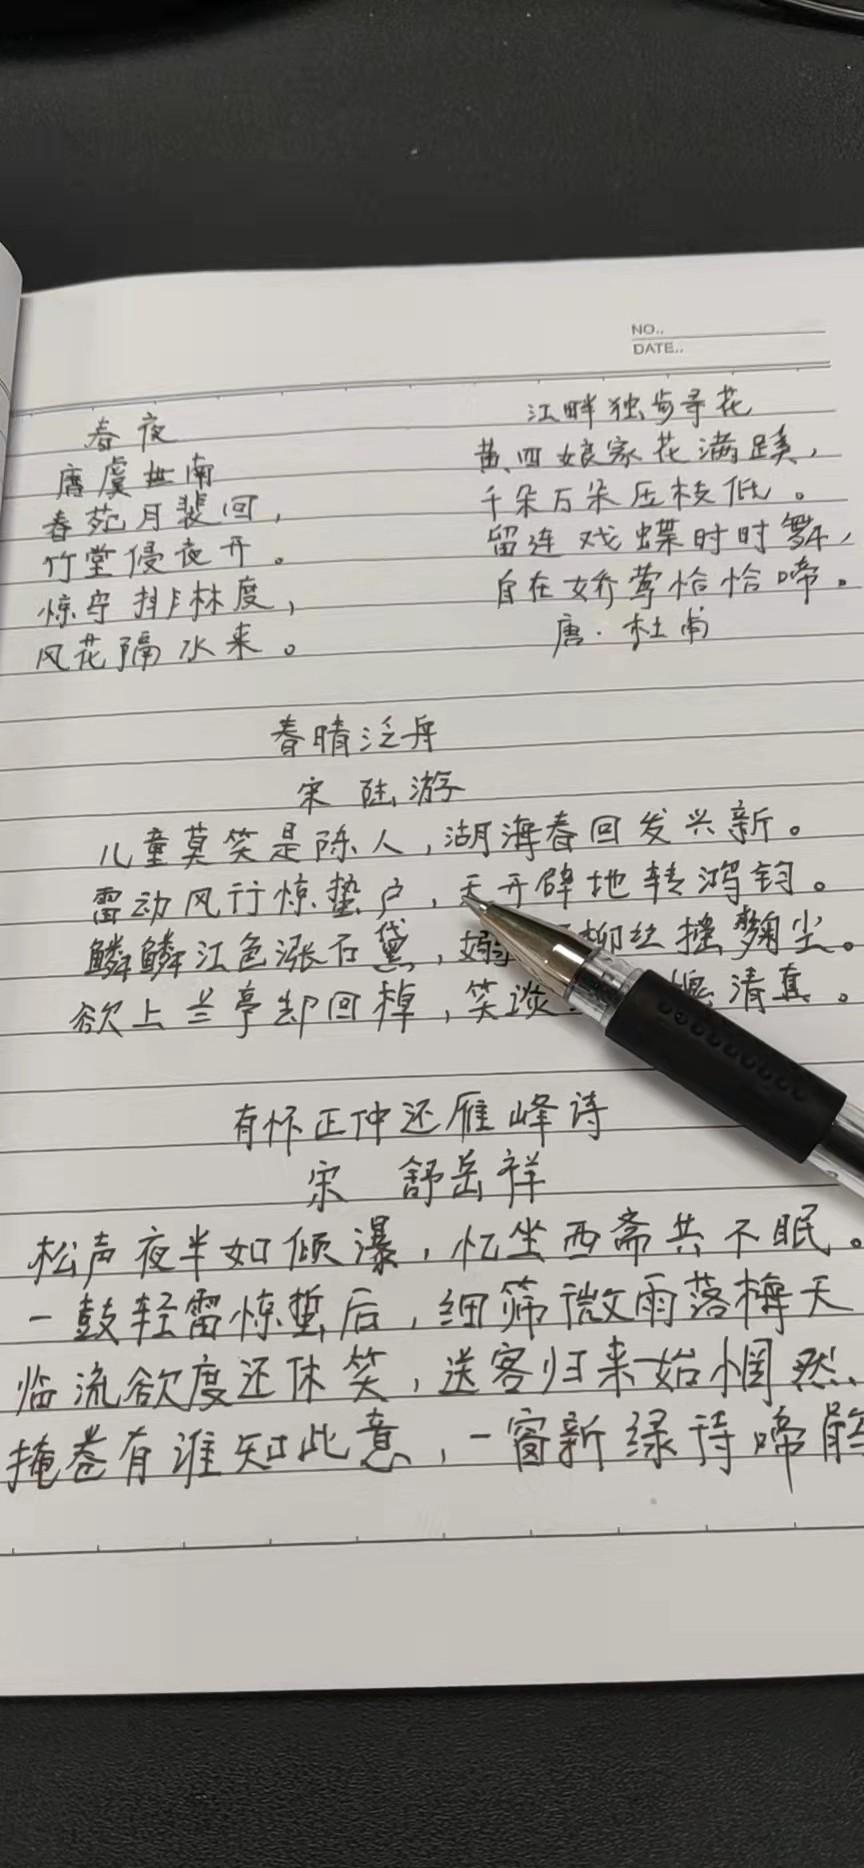 NO..
DATE..
春夜
唐虞世南
春苑月裴回，
竹堂侵夜开。
惊守排林度，
风花隔水来。
江畔独步寻花
黄四娘家花满蹊，
千朵万朵压枝低。
留连戏蝶时时舞，
自在娇莺恰恰啼。
唐·杜甫
春晴泛舟
宋 陆游
儿童莫笑是陈人，湖海春回发兴新。
雷动风行惊蛰户，天开辟地转鸿钧。
鳞鳞江色涨石黛，嫋 柳丝摇麴尘。
欲上兰亭却回棹，笑谈 清真。
有怀正仲还雁峰诗
宋 舒岳祥
松声夜半如倾瀑，忆坐西斋共不眠。
一鼓轻雷惊蛰后，细筛微雨落梅天
临流欲度还休笑，送客归来始惘然、
掩卷有谁知此意，一窗新绿待啼鹃